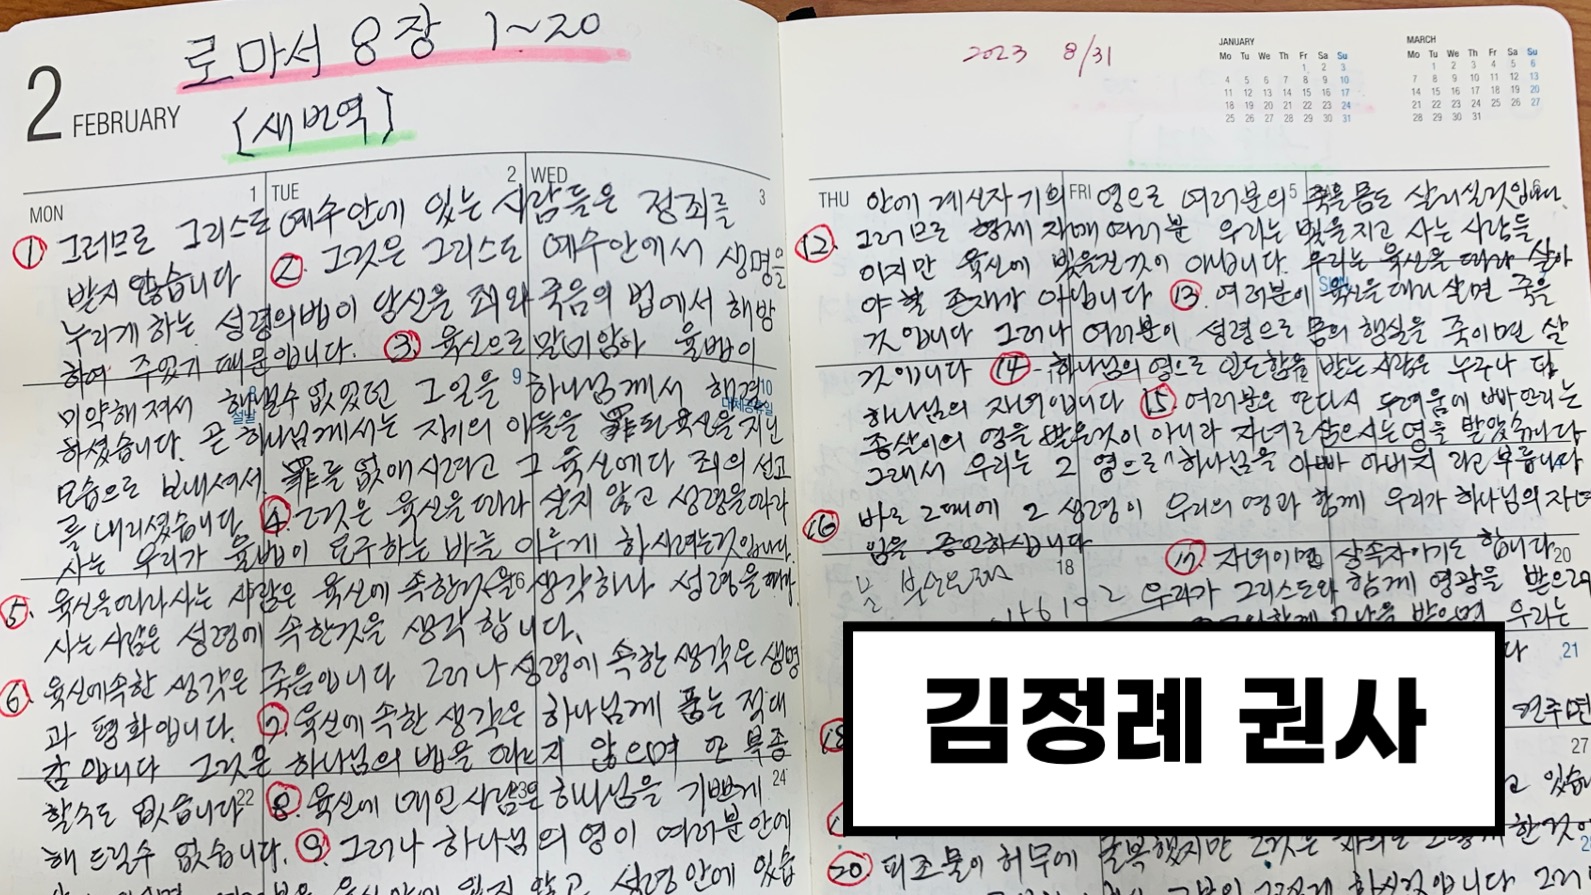 로마서 8장 1~20
2 FEBRUARY
[새번역]
MON 1 TUE 2 WED 3
① 그러므로 그리스도 예수 안에 있는 사람들은 정죄를
받지 않습니다 ②. 그것은 그리스도 예수 안에서 생명을
누리게 하는 성령의 법이 당신을 죄와 죽음의 법에서 해방
하여 주었기 때문입니다. ③. 육신으로 말미암아 율법이
미약해져서 해낼수 없었던 그 일을 하나님께서 해결
하셨습니다. 곧 하나님께서는 자기의 아들을 罪된 육신을 지닌
모습으로 보내셔서 罪를 없애시려고 그 육신에다 죄의 선고
를 내리셨습니다 ④. 그것은 육신을 따라 살지 않고 성령을 따라
사는 우리가 율법이 요구하는 바를 이루게 하시려는 것입니다.
⑤. 육신을 따라 사는 사람은 육신에 속한것을 생각하나 성령을 따라
사는 사람은 성령에 속한것을 생각합니다.
⑥. 육신에 속한 생각은 죽음입니다 그러나 성령에 속한 생각은 생명
과 평화입니다. ⑦. 육신에 속한 생각은 하나님께 품는 적대
감입니다 그것은 하나님의 법을 따르지 않으며 또 복종
할수도 없습니다 22 ⑧. 육신에 매인 사람은 하나님을 기쁘게 24
해 드릴수 없습니다. ⑨. 그러나 하나님의 영이 여러분 안에
육신 안에 있지 않고 성령 안에 있습
2023 8/31
JANUARY
Mo Tu We Th Fr Sa Su
1 2 3
4 5 6 7 8 9 10
11 12 13 14 15 16 17
18 19 20 21 22 23 24
25 26 27 28 29 30 31
MARCH
Mo Tu We Th Fr Sa Su
1 2 3 4 5 6
7 8 9 10 11 12 13
14 15 16 17 18 19 20
21 22 23 24 25 26 27
28 29 30 31
THU FRI 5
안에 계신 자기의 영으로 여러분의 죽을 몸도 살리실 것입니다.
⑫. 그러므로 형제 자매 여러분 우리는 빚을 지고 사는 사람들
이지만 육신에 빚을 진 것이 아닙니다. 우리는 육신을 따라 살아
야 할 존재가 아닙니다 ⑬. 여러분이 육신을 따라 살면 죽을
것입니다 그러나 여러분이 성령으로 몸의 행실을 죽이면 살
것입니다 ⑭ 하나님의 영으로 인도함을 받는 사람은 누구나 다
하나님의 자녀입니다 ⑮. 여러분은 또다시 두려움에 빠뜨리는
종살이의 영을 받은것이 아니라 자녀로 삼으시는 영을 받았습니다
그래서 우리는 그 영으로 하나님을 아빠 아버지 라고 부릅니다
⑯ 바로 그때에 그 성령이 우리의 영과 함께 우리가 하나님의 자녀
임을 증언하십니다
18 ⑰. 자녀이면 상속자이기도 합니다 20
우리가 그리스도와 함께 영광을 받으려
받으면 우리는
21
⑱
27
있습니
⑳. 피조물이 허무에 굴복했지만 그것은 한것이
김정례 권사